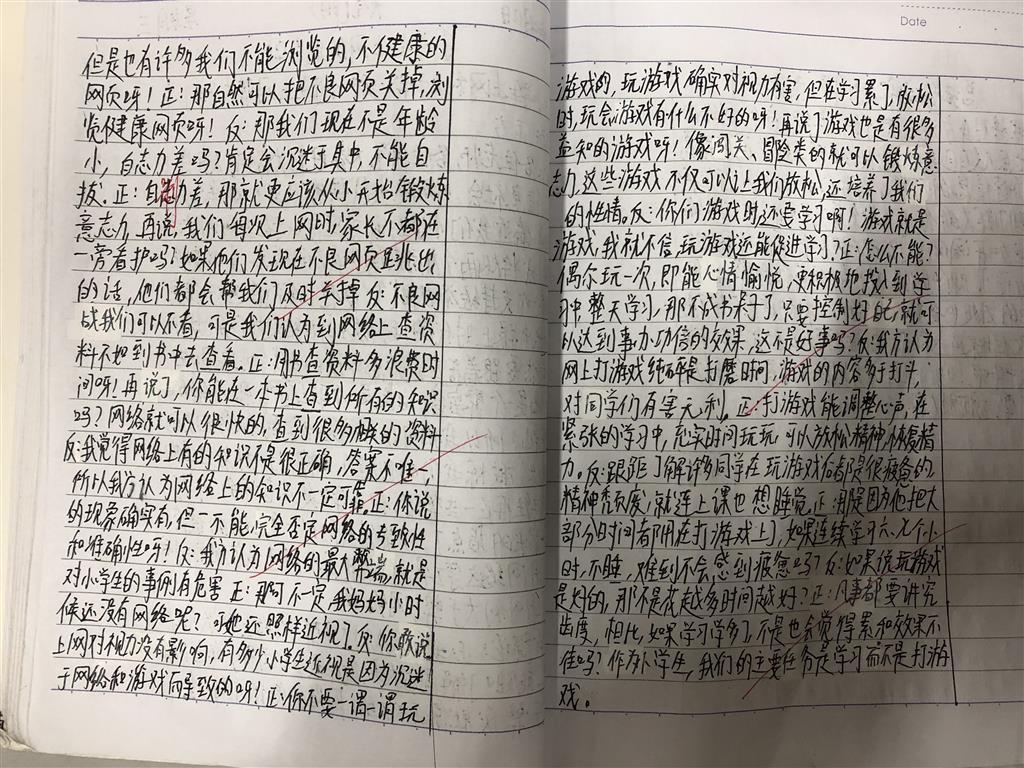 但是也有许多我们不能浏览的,不健康的
网页呀!正:那自然可以把不良网页关掉,浏
览健康网页呀!反:那我们现在不是年龄
小,自志力差吗?肯定会沉迷于其中,不能自
拔。正:自志力差,那就更应该从小开始锻炼
意志力,再说,我们每次上网时,家长不都在
一旁看护吗?如果他们发现在不良网页跳出
的话,他们都会帮我们及时关掉反:不良网
战我们可以不看,可是我们认为到网络上查资
料不如到书中去查看。正:用书查资料多浪费时
间呀!再说了,你能在一本书上查到所有的知识
吗?网络就可以很快的,查到很多相关的资料
反:我觉得网络上有的知识不是很正确,答案不唯一,
所以我方认为网络上的知识不一定可靠。正:你说
的现象确实有,但一不能完全否定网络的专致性
和准确性呀!反:我方认为网络的最大弊端,就是
对小学生的事例有危害 正:那可不一定,我妈妈小时
候还没有网络呢?可她还照样近视了。反:你敢说
上网对视力没有影响,有多少小学生近视是因为沉迷
于网络和游戏而导致的呀!正:你不要一谓一谓玩
Date
游戏的,玩游戏确实对视力有害,但在学习累了,放松
时,玩会游戏有什么不好的呀!再说了游戏也是有很多
益知的游戏呀!像闯关、冒险类的就可以锻炼意
志力,这些游戏不仅可以让我们放松,还培养了我们
的性情。反:你们游戏时还要学习啊!游戏就是
游戏,我就不信,玩游戏还能促进学习?正:怎么不能?
偶尔玩一次,即能心情愉悦,更积极地投入到学
习中,整天学习,那不成书呆子了,只要控制好自己,就可
以达到事力功倍的效果,这不是好事吗?反:我方认为
网上打游戏纯粹是打磨时间,游戏的内容多于打斗,
对同学们有害无利。正:打游戏能调整心声,在
紧张的学习中,充实时间玩玩,可以放松精神,恢复精
力。反:跟距了解许多同学在玩游戏后都是很疲惫的
精神秃废,就连上课也想睡觉。正:那是因为他把大
部分时间者都用在打游戏上了,如果连续学习六、七个小
时,不睡,难到不会感到疲惫吗?反:如果说玩游戏
是好的,那不是花越多时间越好?正:凡事都要讲究
齿度,相比,如果学习学多了,不是也会觉得累和效果不
佳吗?作为小学生,我们的主要任务是学习而不是打游
戏。